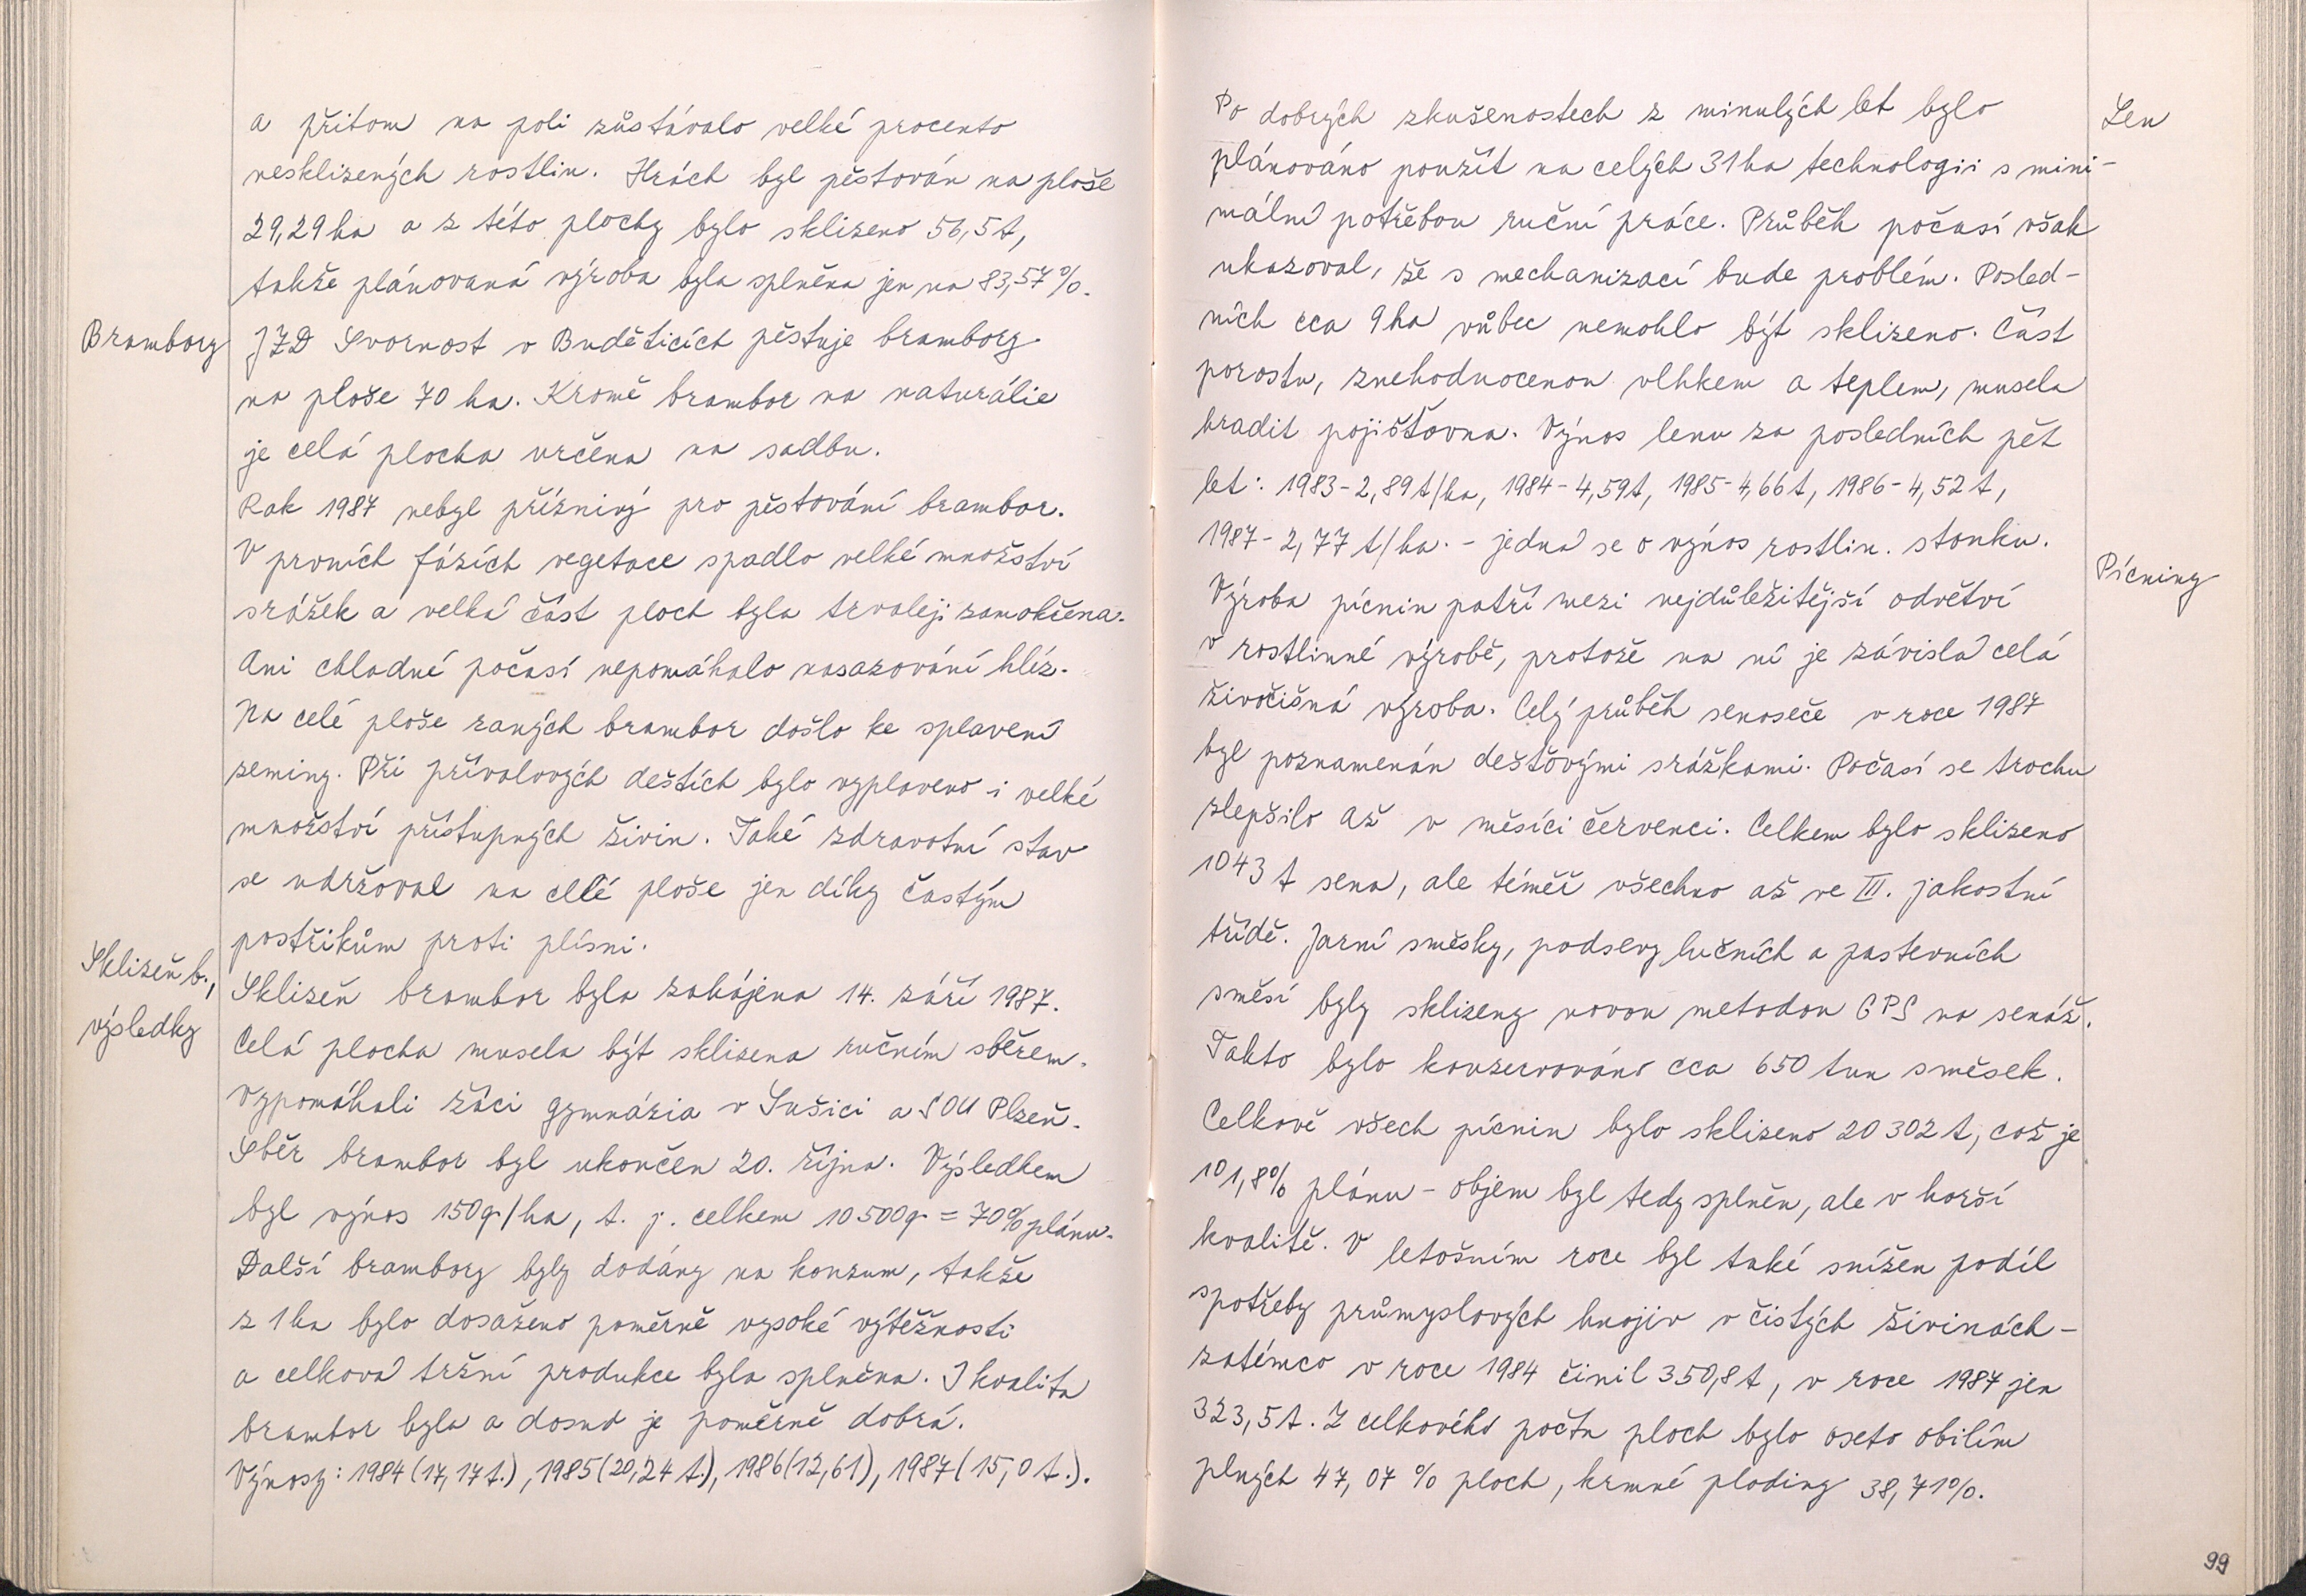 a přitom na poli zůstávalo velké procento
nesklizených rostlin. Hrách byl pěstován na ploše
29,29 ha a z této plochy bylo sklizeno 56,5 t,
takže plánovaná výroba byla splněna jen na 83,57 %.
Brambory
JZD Svornost v Buděticích pěstuje brambory
na ploše 70 ha. Kromě brambor na naturálie
je celá plocha určena na sadbu.
Rok 1987 nebyl příznivý pro pěstování brambor.
V prvních fázích vegetace spadlo velké množství
srážek a velká část ploch byla trvaleji zamokřena.
Ani chladné počasí nepomáhalo nasazování hlíz.
Na celé ploše raných brambor došlo ke splavení
zeminy. Při přívalových deštích bylo vyplaveno i velké
množství přístupných živin. Také zdravotní stav
se udržoval na celé ploše jen díky častým
postřikům proti plísni.
Sklizeň b.,
výsledky
Sklizeň brambor byla zahájena 14. září 1987.
Celá plocha musela být sklizena ručním sběrem.
Vypomáhali žáci gymnázia v Sušici a SOU Plzeň.
Sběr brambor byl ukončen 20. října. Výsledkem
byl výnos 150 q/ha, t. j. celkem 10 500 q = 70 % plánu.
Další brambory byly dodány na konzum, takže
z 1 ha bylo dosaženo poměrně vysoké výtěžnosti
a celková tržní produkce byla splněna. I kvalita
brambor byla a dosud je poměrně dobrá.
Výnosy: 1984 (17,17 t.), 1985 (20,24 t.), 1986 (12,61), 1987 (15,0 t.).
Len
Po dobrých zkušenostech z minulých let bylo
plánováno použít na celých 31 ha technologii s mini-
mální potřebou ruční práce. Průběh počasí však
ukazoval, že s mechanizací bude problém. Posled-
ních cca 9 ha vůbec nemohlo být sklizeno. Část
porostu, znehodnocenou vlhkem a teplem, musela
hradit pojišťovna. Výnos lenu za posledních pět
let: 1983 - 2,89 t/ha, 1984 - 4,59 t, 1985 - 4,66 t, 1986 - 4,52 t,
1987 - 2,77 t/ha. - jedná se o výnos rostlin. stonku.
Pícniny
Výroba pícnin patří mezi nejdůležitější odvětví
v rostlinné výrobě, protože na ní je závislá celá
živočišná výroba. Celý průběh senoseče v roce 1987
byl poznamenán dešťovými srážkami. Počasí se trochu
zlepšilo až v měsíci červenci. Celkem bylo sklizeno
1043 t sena, ale téměř všechno až ve III. jakostní
třídě. Jarní směsky, podsevy lučních a pastevních
směsí byly sklizeny novou metodou GPS na senáž.
Takto bylo konzervováno cca 650 tun směsek.
Celkově všech pícnin bylo sklizeno 20 302 t, což je
101,8 % plánu - objem byl tedy splněn, ale v horší
kvalitě. V letošním roce byl také snížen podíl
spotřeby průmyslových hnojiv v čistých živinách -
zatímco v roce 1984 činil 350,8 t, v roce 1987 jen
323,5 t. Z celkového počtu ploch bylo oseto obilím
plných 47,07 % ploch, krmné plodiny 38,71 %.
99